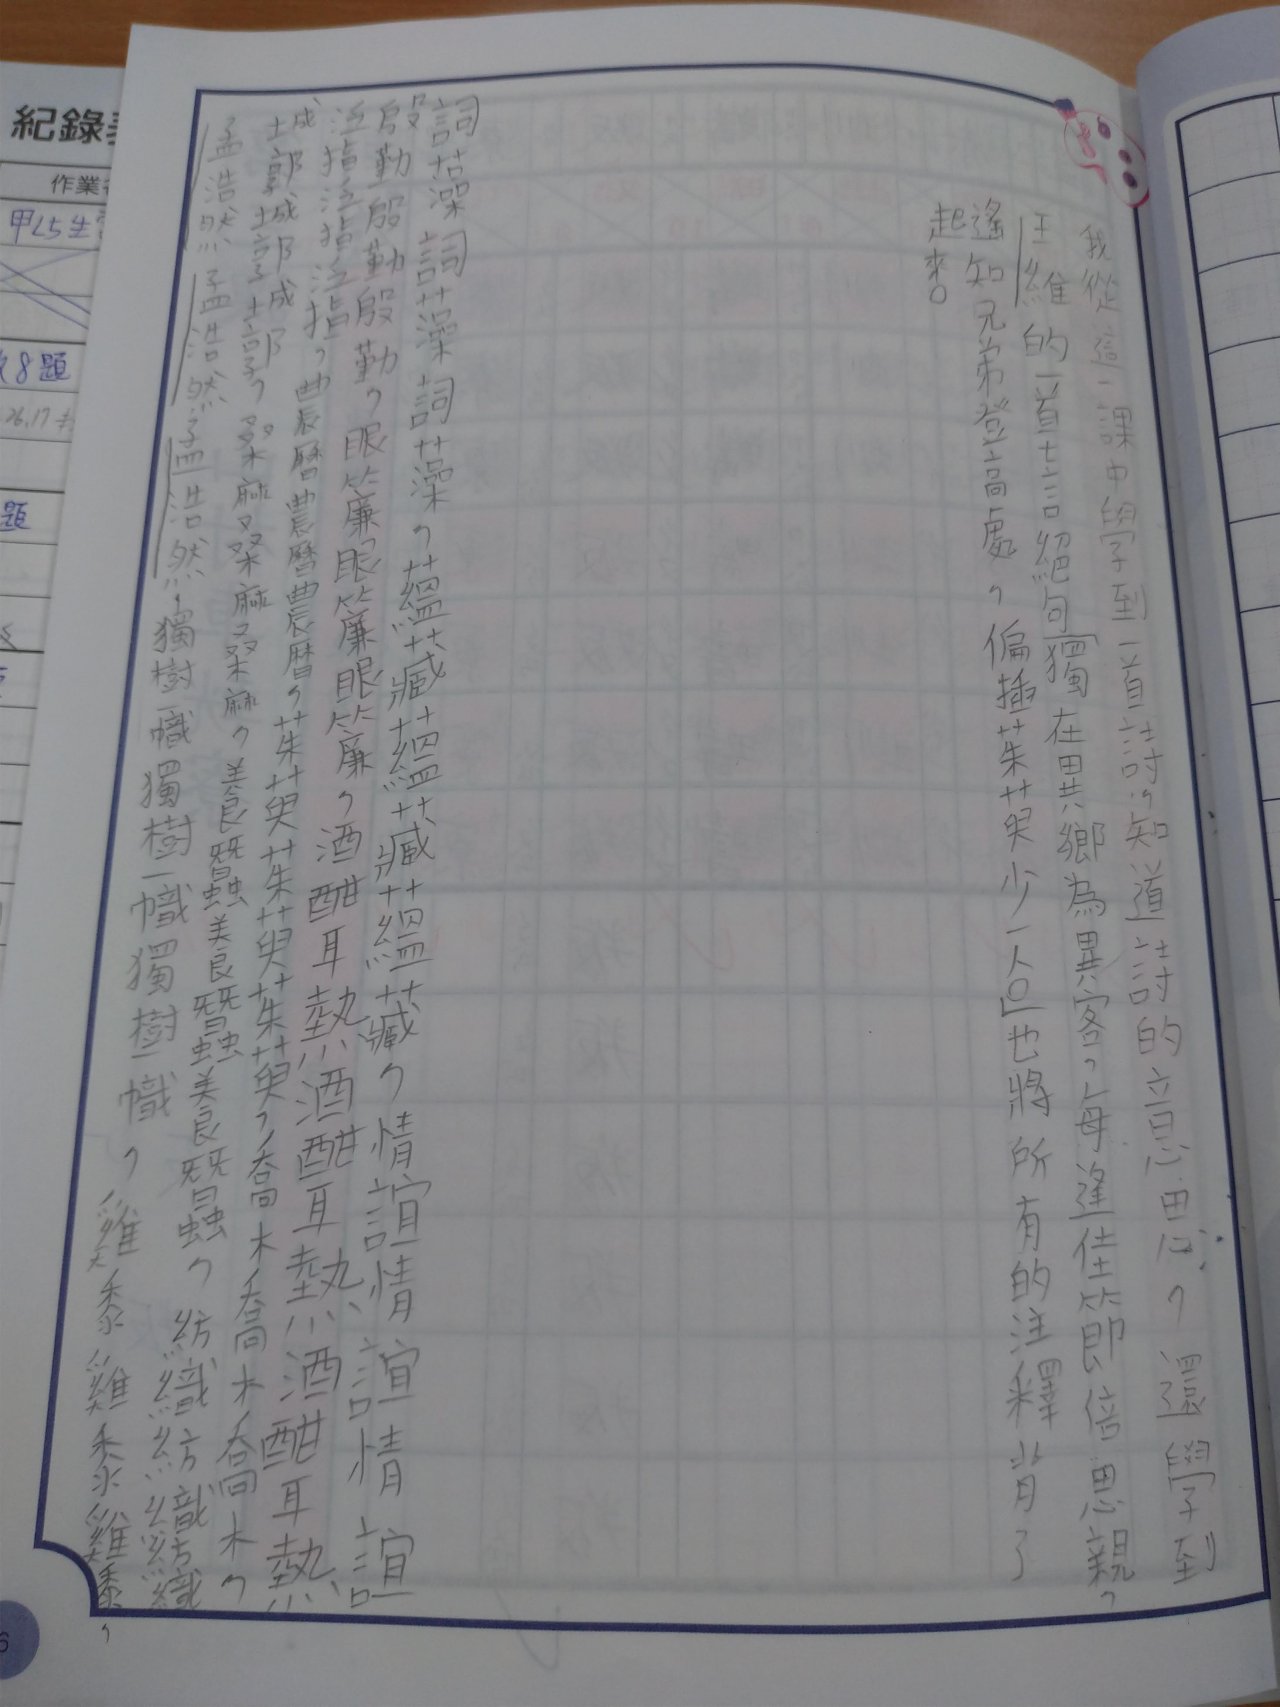 我從這一課中學到一首詩,知道詩的意思,還學到
王維的一首七言絕句「獨在異鄉為異客,每逢佳節倍思親,
遙知兄弟登高處,偏插茱萸少一人。」也將所有的注釋背了
起來。
詞藻詞藻詞藻,蘊藏蘊藏蘊藏,情誼情誼情誼
殷勤殷勤殷勤,眼簾眼簾眼簾,酒酣耳熱酒酣耳熱酒酣耳熱
逕指逕指逕指,農曆農曆農曆,茱萸茱萸茱萸,喬木喬木喬木,
城郭城郭城郭,桑麻桑麻桑麻,養蠶養蠶養蠶,紡織紡織紡織
孟浩然孟浩然孟浩然,獨樹一幟獨樹一幟獨樹一幟,雞黍雞黍雞黍,
紀錄
作業
甲L5生
8題
題
6